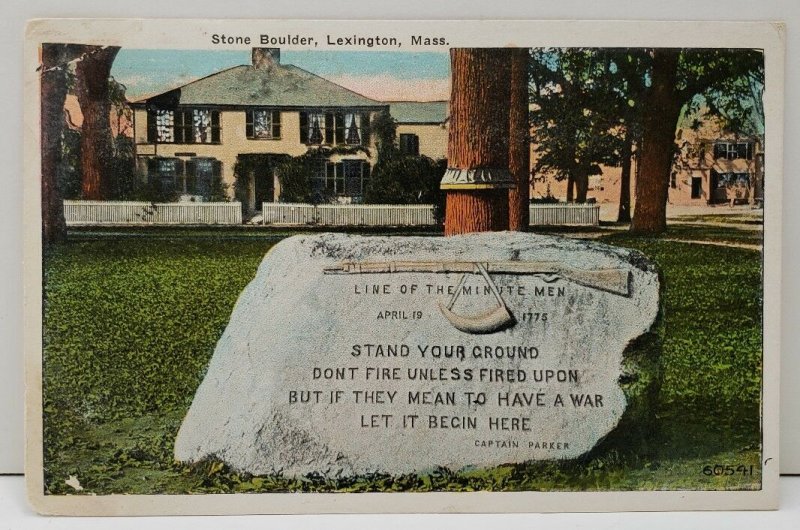 Stone Boulder, Lexington, Mass.
LINE OF THE MINUTE MEN
APRIL 19 1775
STAND YOUR GROUND
DONT FIRE UNLESS FIRED UPON
BUT IF THEY MEAN TO HAVE A WAR
LET IT BEGIN HERE
CAPTAIN PARKER
60541